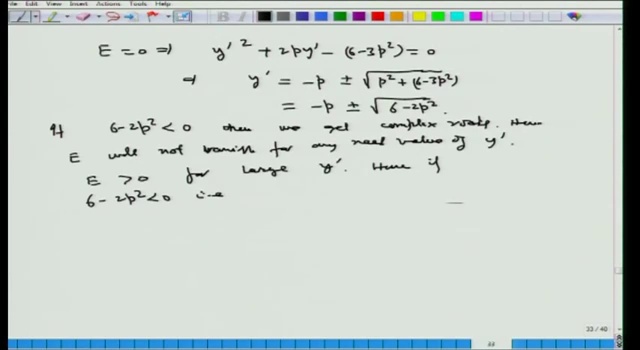 Edit View Insert Actions Tools Help
E = 0 ⇒ y'² + 2py' - (6-3p²) = 0
⇒ y' = -p ± √p² + (6-3p²)
= -p ± √6-2p².
If 6-2p² < 0 then we get complex roots. Hence
E will not vanish for any real value of y'.
E > 0 for large y'. Hence if
6-2p² < 0 i.e
33 / 40
33